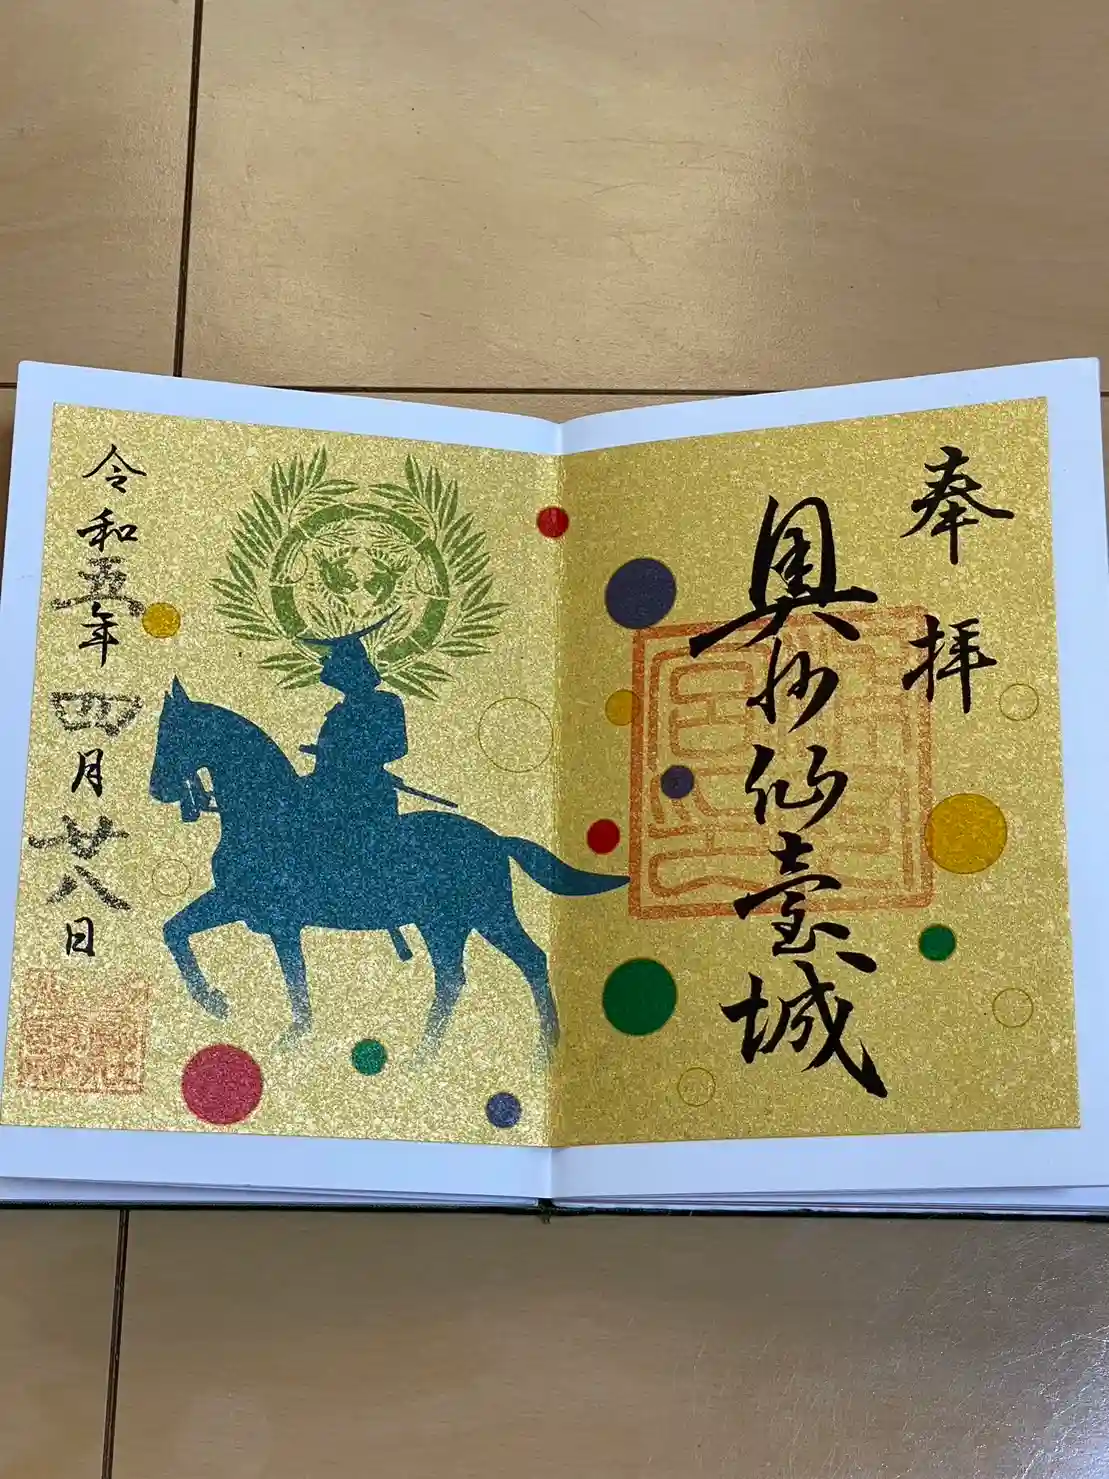 奉拝
奥州仙臺城
令和五年四月廿八日